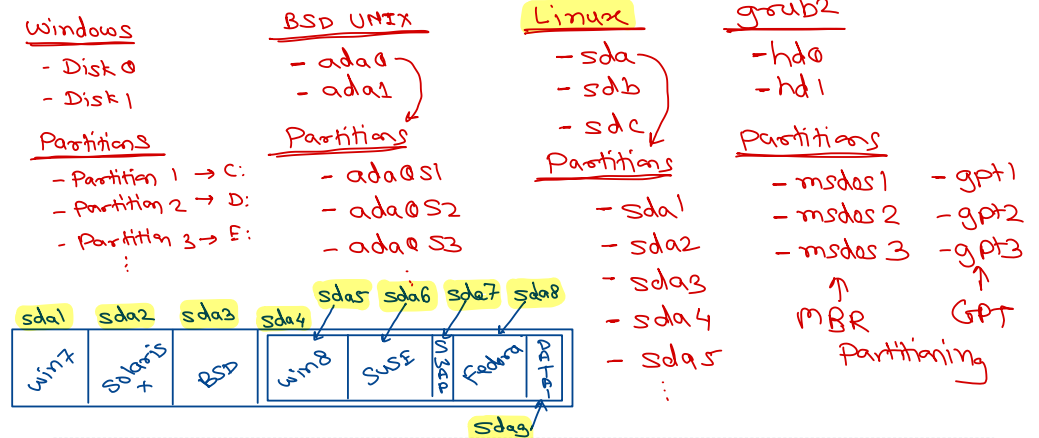 Windows
- Disk 0
- Disk 1
Partitions
- Partition 1 → C:
- Partition 2 → D:
- Partition 3 → E:
⋮
BSD UNIX
- ada0
- ada1
Partitions
- ada0s1
- ada0S2
- ada0S3
⋮
Linux
- sda
- sdb
- sdc
Partitions
- sda1
- sda2
- sda3
- sda4
- sda5
⋮
grub2
- hd0
- hd1
Partitions
- msdos1 - gpt1
- msdos2 - gpt2
- msdos3 - gpt3
MBR GPT
Partitioning
sda5 sda6 sda7 sda8
sda1 sda2 sda3 sda4
Win7 Solaris + BSD Win8 SUSE SWAP Fedora DATA
sda9